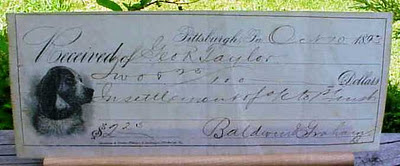 Pittsburgh, Pa Oct 20 189
Received of Geo R Taylor
Two & 25/100 Dollars
In settlement of a/c to
$2.25 Baldwin & Graham